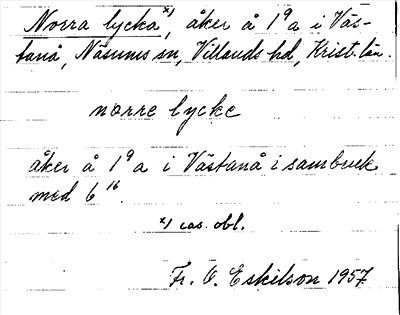 Norra lycka x), åker å 1 9 a i Väs-
tanå, Näsums sn, Villands hd, Krist. län.
norre lycke
åker å 1 9 a i Västanå i sambruk
med 6 16.
x) cas. obl.
Fr. O. Eskilson 1957